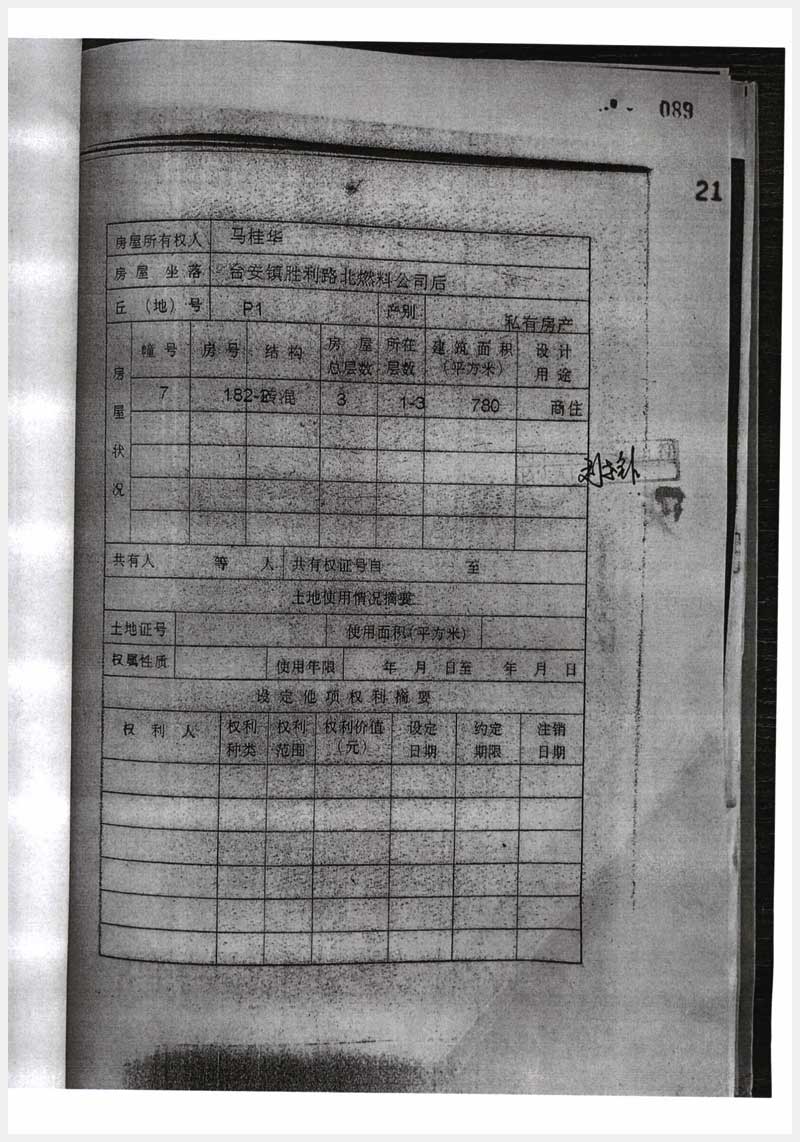 089
21
房屋所有权人 马桂华
房屋坐落 台安镇胜利路北燃料公司后
丘（地）号 P1 产别 私有房产
房屋状况
幢号 房号 结构 房屋总层数 所在层数 建筑面积（平方米） 设计用途
7 182-2 砖混 3 1-3 780 商住
共有人 等 人 共有权证号自 至
土地使用情况摘要
土地证号 使用面积（平方米）
权属性质 使用年限 年 月 日至 年 月 日
设定他项权利摘要
权利人 权利种类 权利范围 权利价值（元） 设定日期 约定期限 注销日期